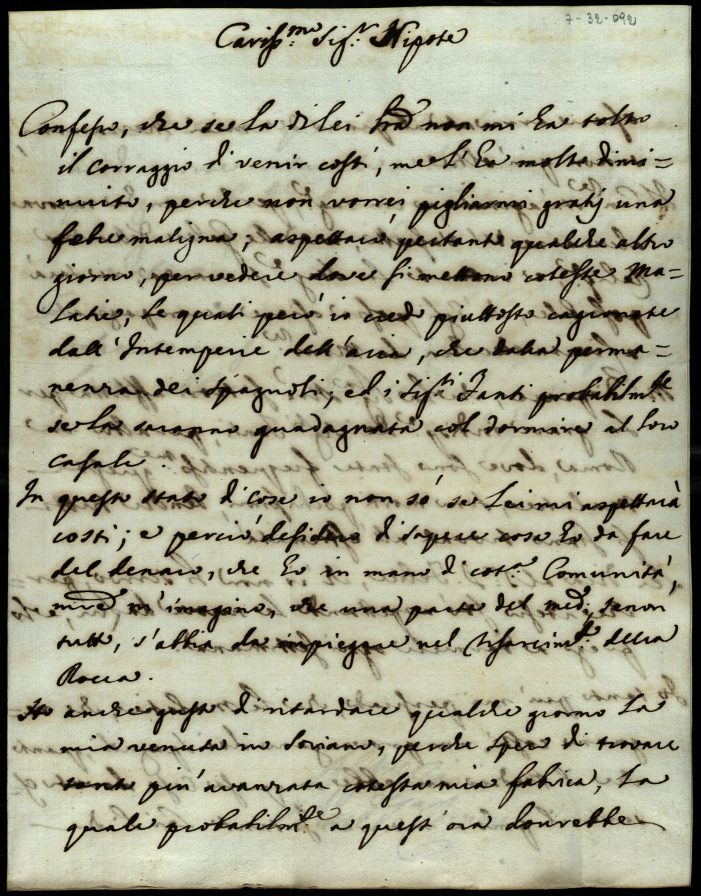 7-32-092
Cariss.mo Sig.r Nipote
Confesso, che se la di lei non mi ha tolto
il corraggio di venir costì, me l'ha molto dimi=
nuito, perche non vorrei pigliarmi gratis una
febre maligna; aspettarò pertanto qualche altro
giorno, per vedere dove si mettono coteste Ma=
latie, le quali però io credo piuttosto cagionate
dall'Intemperie dell'aria, che dalla perma=
nenza dei Spagnoli; ed i Sig.ri Fanti probabilm.te
se la saranno guadagnata col dormire al loro
casale.
In questo stato di cose io non só se Lei mi aspettarà
costì; e perciò desidero di sapere cosa ho da fare
del denaro, che ho in mano di cot.a Comunità,
m'imagino, che una parte del med.o, se non
tutto, s'abbia da impiegare nel risarcim.to della
Rocca.
Ho anche gusto di ritardare qualche giorno la
mia venuta in Soriano, perche spero di trovare
tanto più avanzata cotesta mia fabrica, la
quale probabilm.te a quest'ora dovrebbe